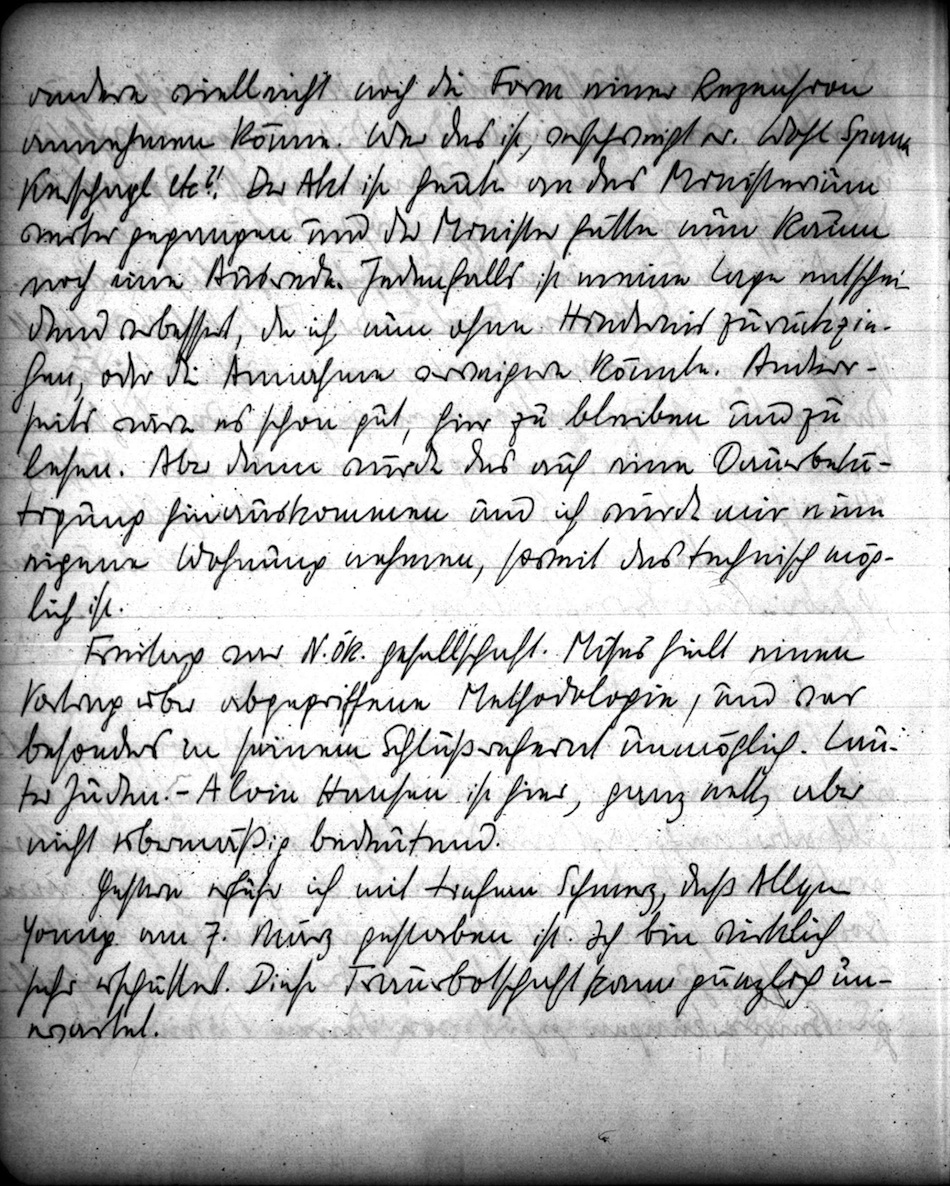 andere vielleicht noch die Form einer Rezension
annehmen könne. Wer das ist, verschweigt er. Wohl Spann
Kerschagl etc?! Der Akt ist heute an das Ministerium
weiter gegangen und der Minister hätte nun kaum
noch eine Ausrede. Jedenfalls ist meine Lage entschei-
dend verbessert, da ich nun ohne Hindernis zurückzie-
hen, oder die Annahme verweigern könnte. Anderer-
seits wäre es schon gut, hier zu bleiben und zu
lesen. Aber dann würde das auf eine Dauerbetä-
tigung hinauskommen und ich würde mir eine
eigene Wohnung nehmen, soweit das technisch mög-
lich ist.
Freitag war N.Ök. Gesellschaft. Mises hielt einen
Vortrag über abgegriffene Methodologie, und war
besonders in seinem Schlußreferat unmöglich. Lau-
ter Juden. – Alvin Hansen ist hier, ganz nett, aber
nicht übermäßig bedeutend.
Gestern erfuhr ich mit tiefem Schmerz, daß Allyn
Young am 7. März gestorben ist. Ich bin wirklich
sehr erschüttert. Diese Trauerbotschaft kam gänzlich un-
erwartet.